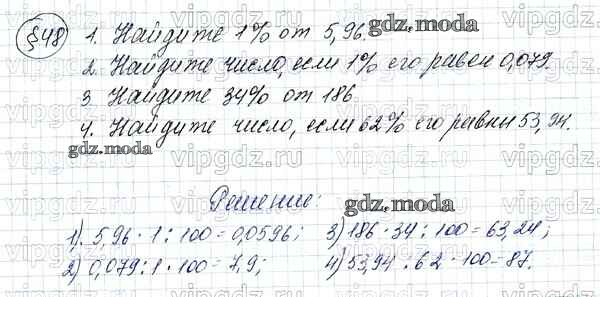 §48
1. Найдите 1% от 5,96.
gdz.moda
2. Найдите число, если 1% его равен 0,079.
3 Найдите 34% от 186
4. Найдите число, если 62% его равны 53,94.
gdz.moda
vipgdz.ru
Решение:
gdz.moda
1). 5,96 · 1 : 100 = 0,0596;
2) 0,079 : 1 · 100 = 7,9;
3) 186 · 34 : 100 = 63,24;
4) 53,94 : 62 · 100 = 87.